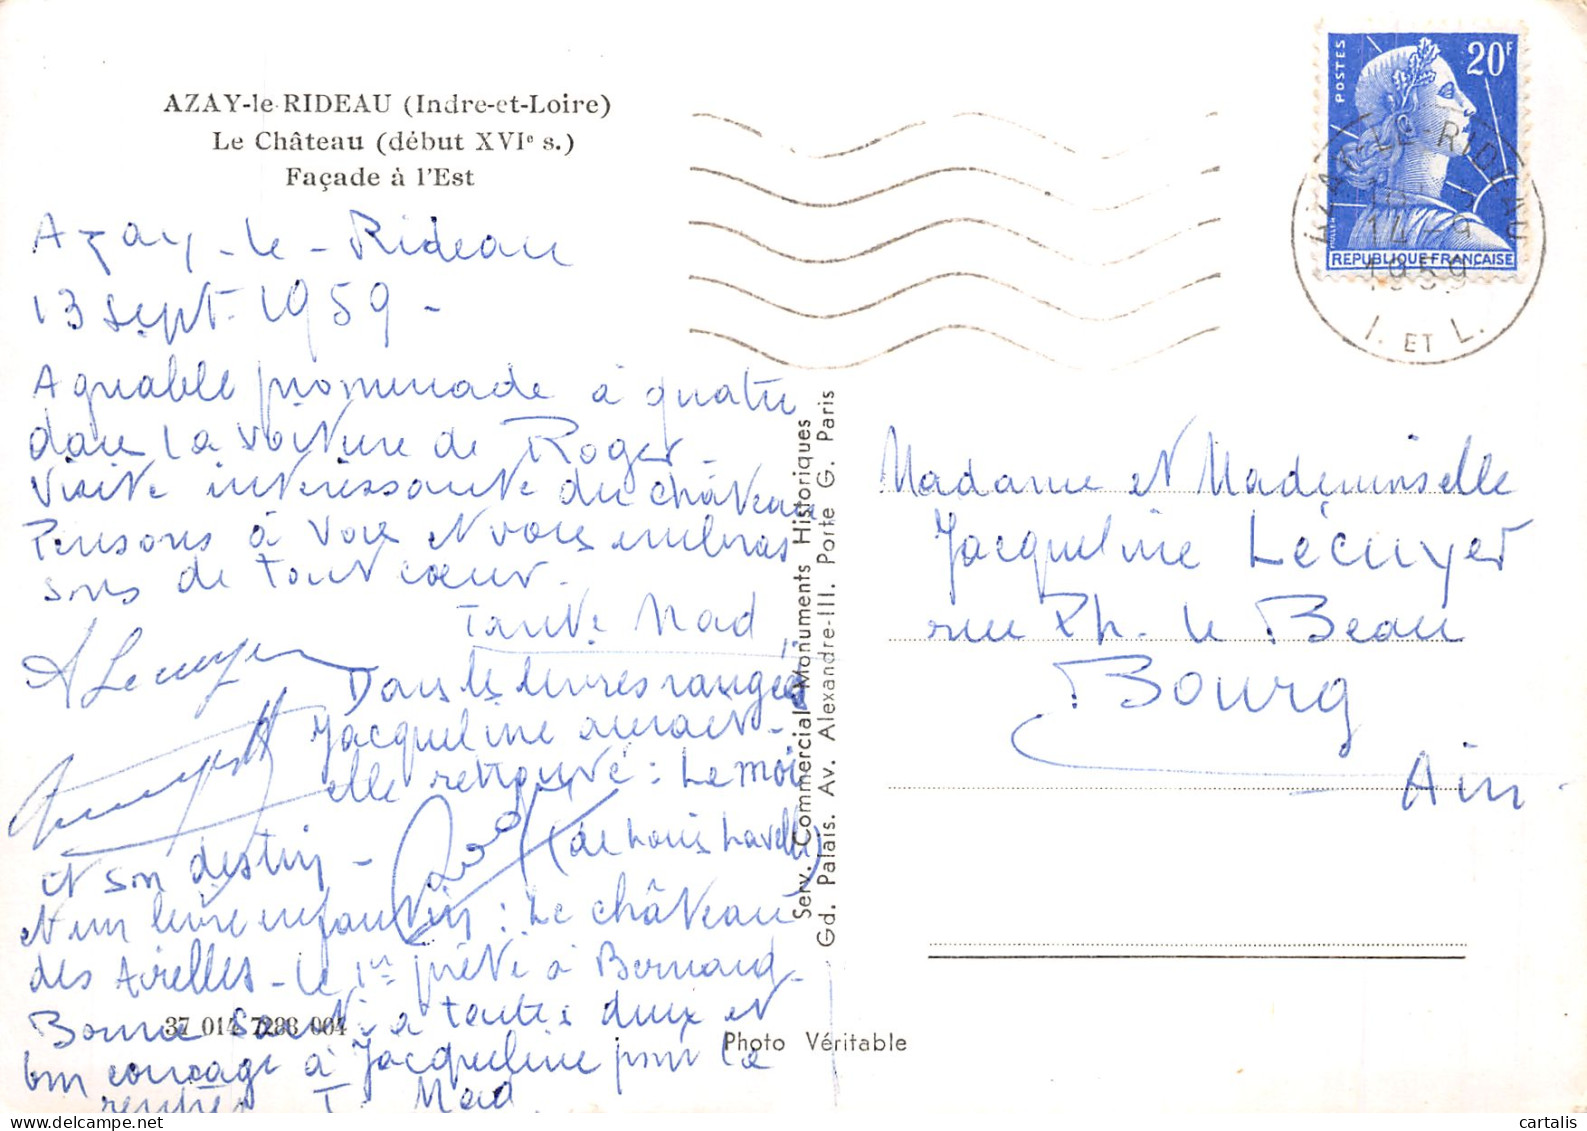 AZAY-le-RIDEAU (Indre-et-Loire)
Le Château (début XVIe s.)
Façade à l'Est
Azay-le-Rideau
13 sept. 1959 -
Agréable promenade à quatre
dans la voiture de Roger -
Visite intéressante du château
Pensons à vous et vous embras
sons de tout cœur -
Tante Mad
A Lecuyer
Dans les livres rangés
Jacqueline aurait-
elle retrouvé : Le moi
et son destin -
(de Louis Lavelle)
et un livre enfantin : Le château
des Airelles - le 1er prêté à Bernard -
Bonne santé à toutes deux et
bon courage à Jacqueline pour la
rentrée T. Mad
37 014 7288 004
Photo Véritable
Serv. Commercial Monuments Historiques
Gd. Palais. Av. Alexandre-III. Porte G. Paris
POSTES
20F
MULLER
REPUBLIQUE FRANÇAISE
AZAY-LE-RIDEAU
14-9
1959
I. ET L.
Madame et Mademoiselle
Jacqueline Lécuyer
rue Ph. le Beau
Bourg
Ain -
cartalis